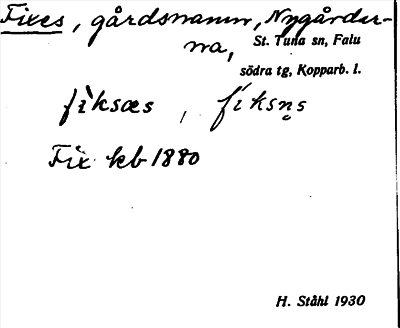 Fixes, gårdsnamn, Nygårdar-
na,
St. Tuna sn, Falu
södra tg, Kopparb. l.
fìksæs, fíksn̥s
Fix kb 1880
H. Ståhl 1930